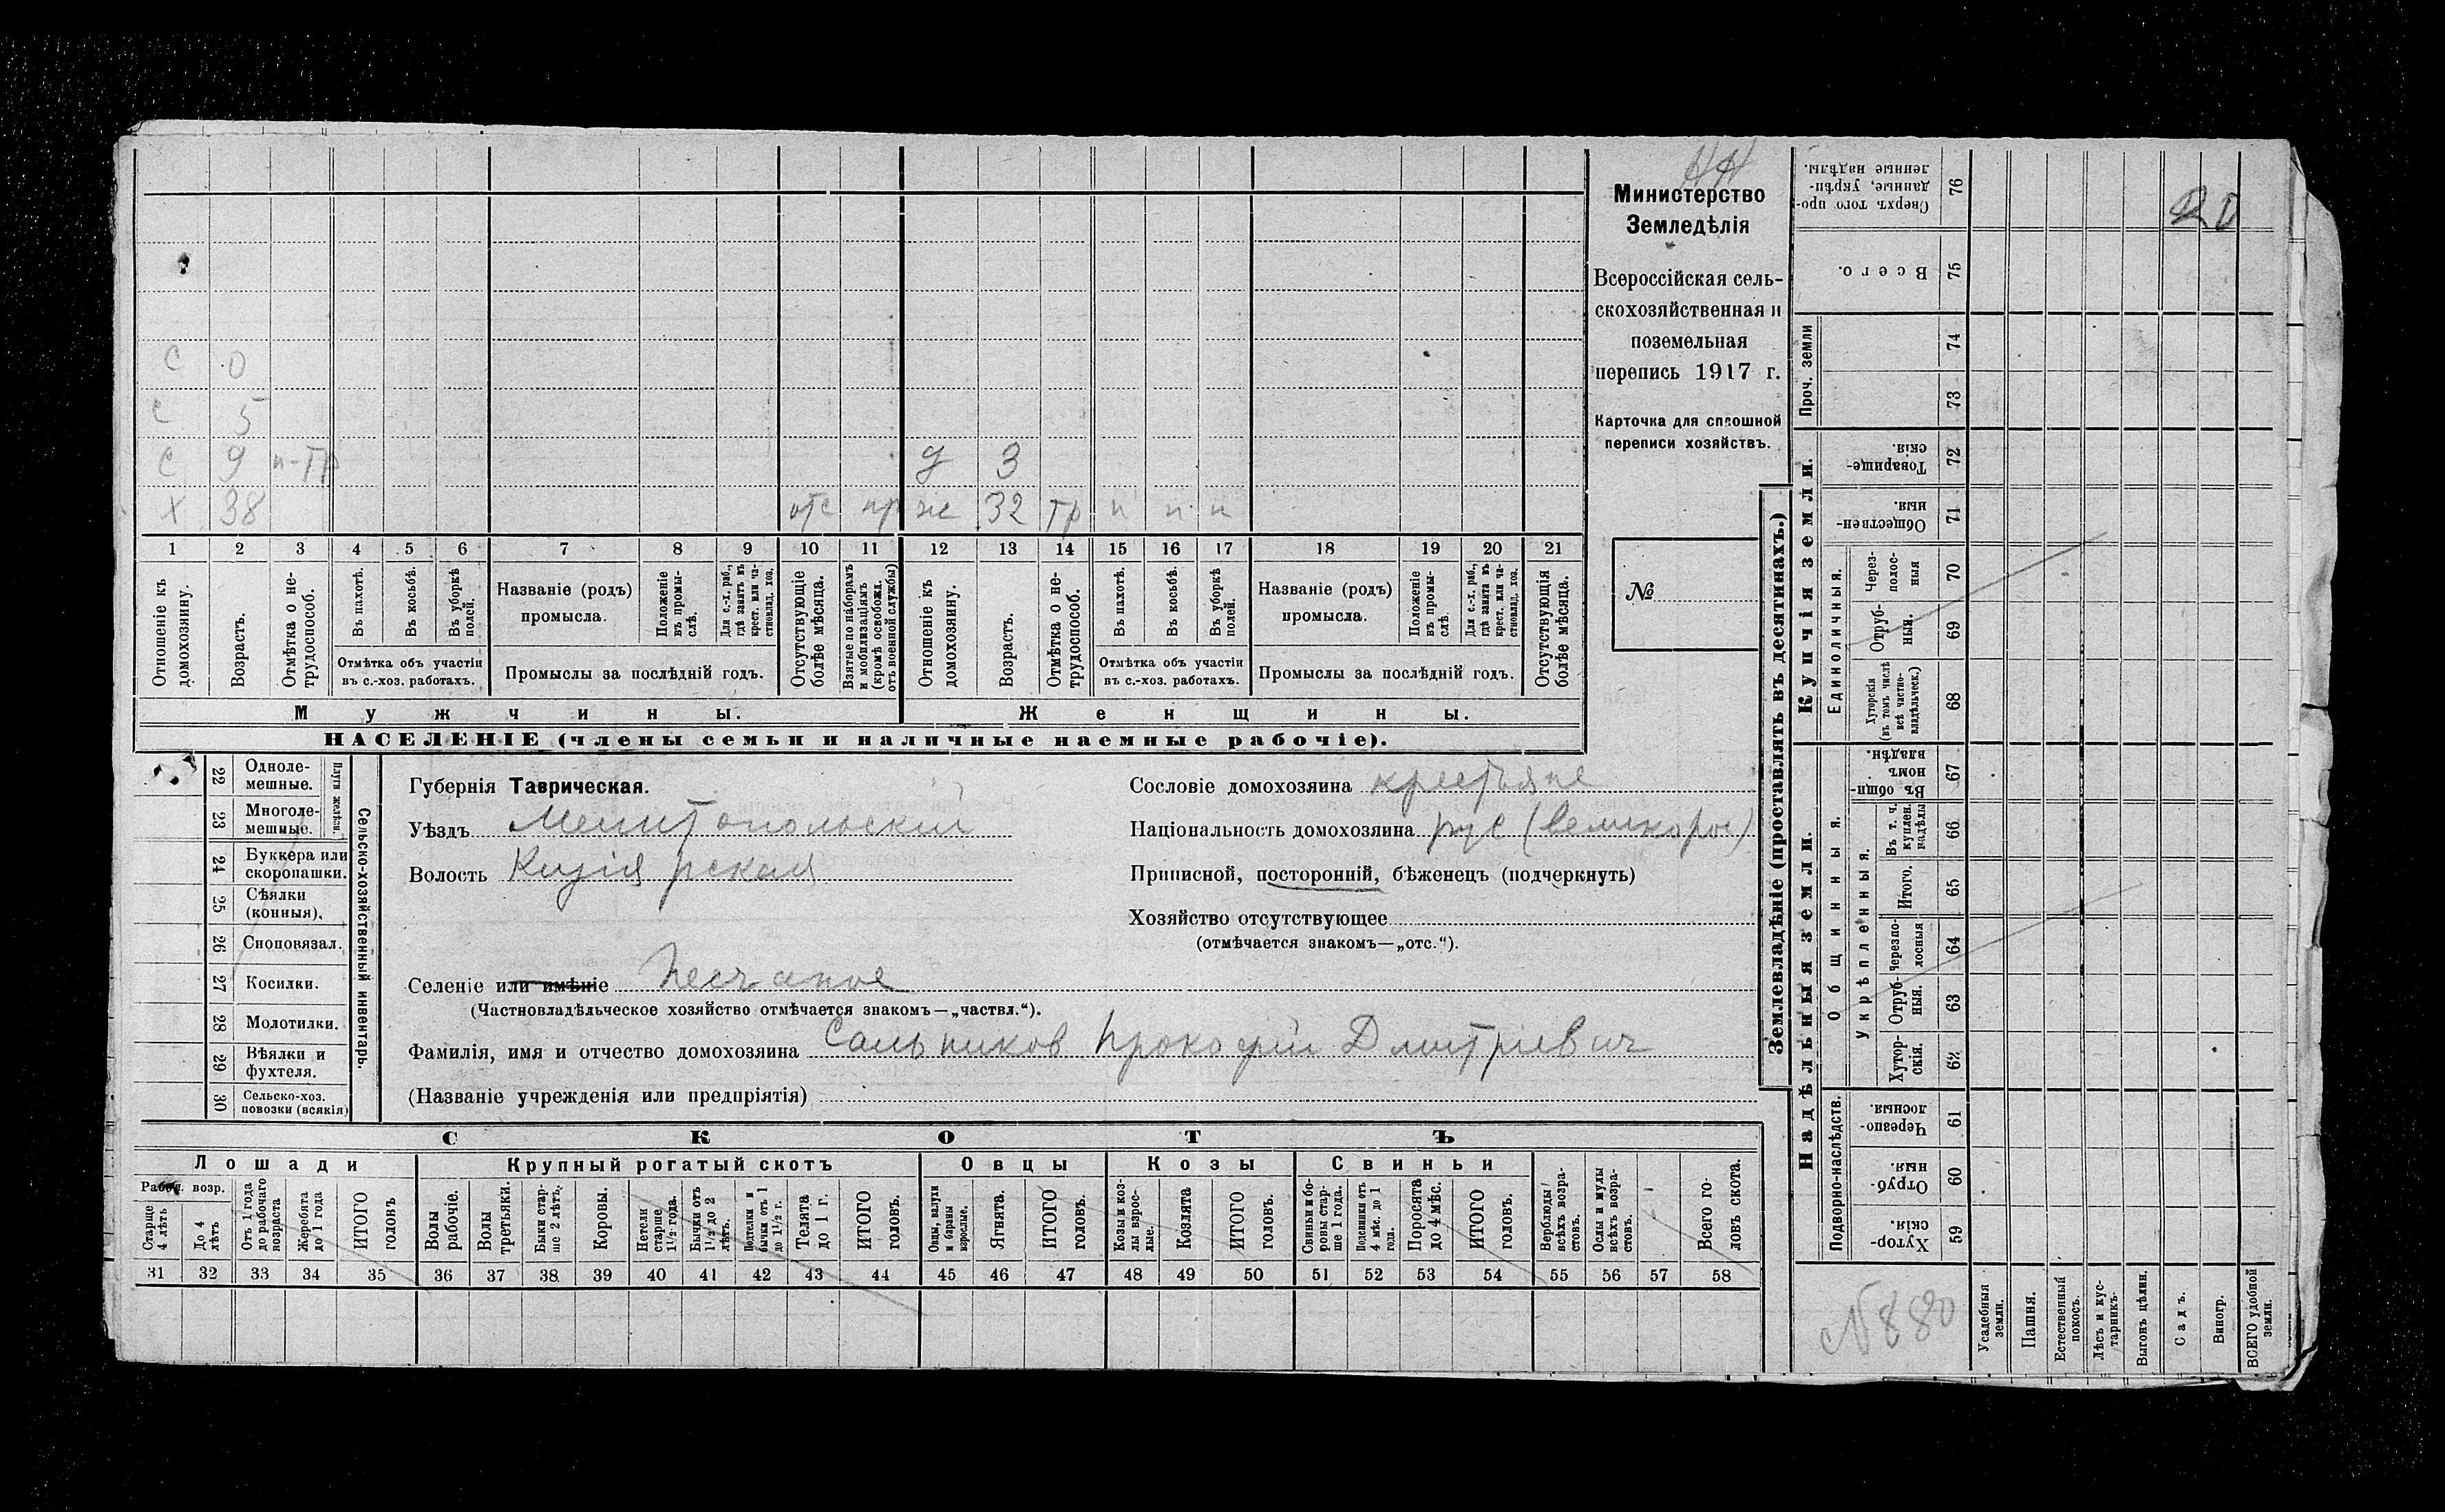 НН
Министерство
Земледѣлія
Всероссійская сель-
скохозяйственная и
поземельная
перепись 1917 г.
Карточка для сплошной
переписи хозяйствъ.
№
С 0
С 5
С 9 п-тр
Х 38 отс пр
д 3
же 32 тр п п п
1 2 3 4 5 6 7 8 9 10 11 12 13 14 15 16 17 18 19 20 21
Отношеніе къ домохозяину.
Возрастъ.
Отмѣтка о не-трудоспособ.
Въ пахотѣ.
Въ косьбѣ.
Въ уборкѣ полей.
Отмѣтка объ участіи
въ с.-хоз. работахъ.
Названіе (родъ)
промысла.
Положеніе въ промы-слѣ.
Для с.-х. раб., гдѣ занятъ въ крест. или ча-стновлад. хоз.
Промыслы за послѣдній годъ.
Отсутствующіе болѣе мѣсяца.
Взятые по наборамъ и мобилизаціямъ (кромѣ освобожд. отъ военной службы)
Отношеніе къ домохозяину.
Возрастъ.
Отмѣтка о не-трудоспособ.
Въ пахотѣ.
Въ косьбѣ.
Въ уборкѣ полей.
Отмѣтка объ участіи
въ с.-хоз. работахъ.
Названіе (родъ)
промысла.
Положеніе въ промы-слѣ.
Для с.-х. раб., гдѣ занята въ крест. или ча-стновлад. хоз.
Промыслы за послѣдній годъ.
Отсутствующія болѣе мѣсяца.
Мужчины.
Женщины.
НАСЕЛЕНІЕ (члены семьи и наличные наемные рабочіе).
22 Одноле-мешные.
23 Многоле-мешные.
Плуги желѣзн.
24 Буккера или скоропашки.
25 Сѣялки (конныя).
26 Сноповязал.
27 Косилки.
28 Молотилки.
29 Вѣялки и фухтеля.
30 Сельско-хоз. повозки (всякія)
Сельско-хозяйственный инвентарь.
Губернія Таврическая.
Уѣздъ Мелитопольскій
Волость Кизіярская
Селеніе или имѣніе Песчаное
(Частновладѣльческое хозяйство отмѣчается знакомъ—„частвл.“).
Фамилія, имя и отчество домохозяина Сальников Прокофій Дмитріевич
(Названіе учрежденія или предпріятія)
Сословіе домохозяина крестьяне
Національность домохозяина рус (великорос)
Приписной, посторонній, бѣженецъ (подчеркнуть)
Хозяйство отсутствующее
(отмѣчается знакомъ—„отс.“).
СКОТЪ
Лошади
Крупный рогатый скотъ
Овцы
Козы
Свиньи
Рабоч. возр.
Старше 4 лѣтъ
До 4 лѣтъ
Отъ 1 года до рабочаго возраста
Жеребята до 1 года
ИТОГО головъ
Волы рабочіе.
Волы третьяки.
Быки стар-ше 2 лѣтъ.
Коровы.
Нетели старше 1½ года.
Бычки отъ 1½ до 2 лѣтъ.
Подтелки и бычки отъ 1 до 1½ г.
Телята до 1 г.
ИТОГО головъ.
Овцы, валухи и бараны взрослые.
Ягнята.
ИТОГО головъ.
Козы и коз-лы взрос-лые.
Козлята
ИТОГО головъ.
Свиньи и бо-ровы стар-ше 1 года.
Подсвинки отъ 4 мѣс. до 1 года.
Поросята до 4 мѣс.
ИТОГО головъ.
Верблюды всѣхъ возра-стовъ.
Ослы и мулы всѣхъ возра-стовъ.
Всего го-ловъ скота.
31 32 33 34 35 36 37 38 39 40 41 42 43 44 45 46 47 48 49 50 51 52 53 54 55 56 57 58
Землевладѣніе (проставлять въ десятинахъ.)
Сверхъ того про-данные, укрѣп-ленные надѣлы. 76
Всего. 75
Проч. земли
74
73
Купчія земли.
Товарище-скія 72
Обществен-ныя. 71
Единоличныя.
Через-полос-ныя 70
Отруб-ныя. 69
Хуторскія (въ томъ числѣ всѣ частно-владѣльческ.) 68
Надѣльныя земли.
Общинныя.
Въ общин-номъ владѣн. 67
Укрѣпленныя.
Въ т. ч. куплен. надѣлы 66
Итого. 65
Черезпо-лосныя 64
Отруб-ныя. 63
Хутор-скія. 62
Подворно-наслѣдств.
Черезпо-лосныя. 61
Отруб-ныя. 60
Хутор-скія. 59
№880
Усадебныя земли.
Пашня.
Естественный покосъ.
Лѣсъ и кус-тарникъ.
Выгонъ цѣлин.
Садъ.
Виногр.
ВСЕГО удобной земли.